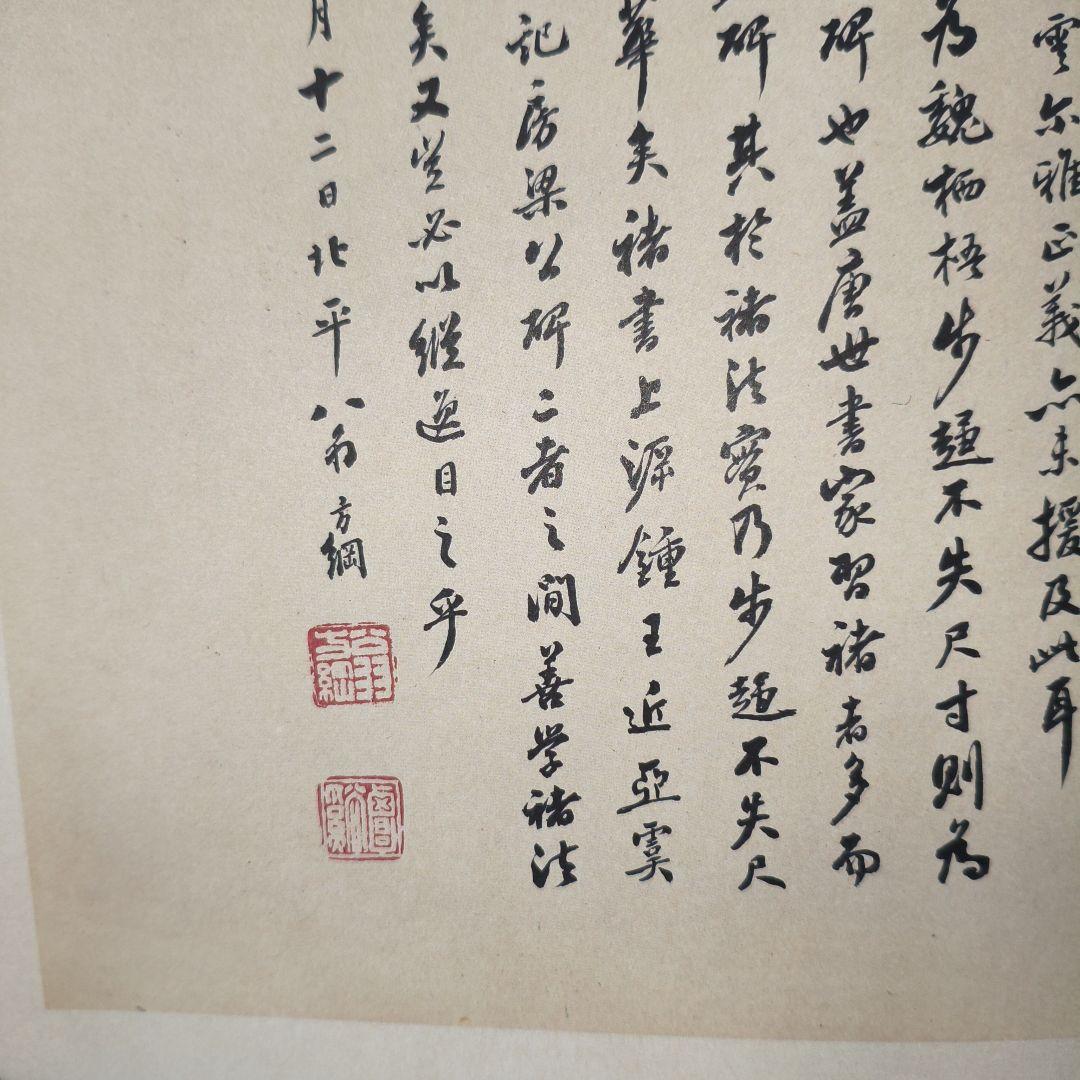 雲尔雅正義亦未援及此耳
为魏栖梧步趨不失尺寸则为
碑也盖唐世書家習褚者多而
碑其於褚法實乃步趨不失尺
華矣褚書上源鍾王近亞虞
記房梁公碑二者之間善学褚法
矣又豈必以縱逸目之乎
月十二日北平翁方綱
翁方綱